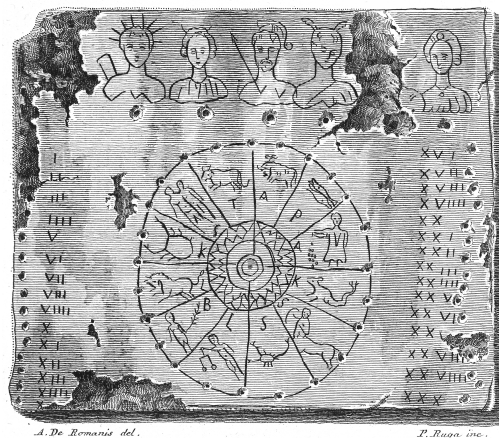 I
III
IIII
V
VI
VII
VIII
VIIII
X
XI
XII
XIII
XIIII
T A
P
A
K
K
B
L S
XVI
XVII
XVIII
XVIIII
XX
XXI
XXII
XXIII
XXIIII
XXV
XXVI
XXVIIII
XXX
A. De Romanis del.
P. Ruga inc.